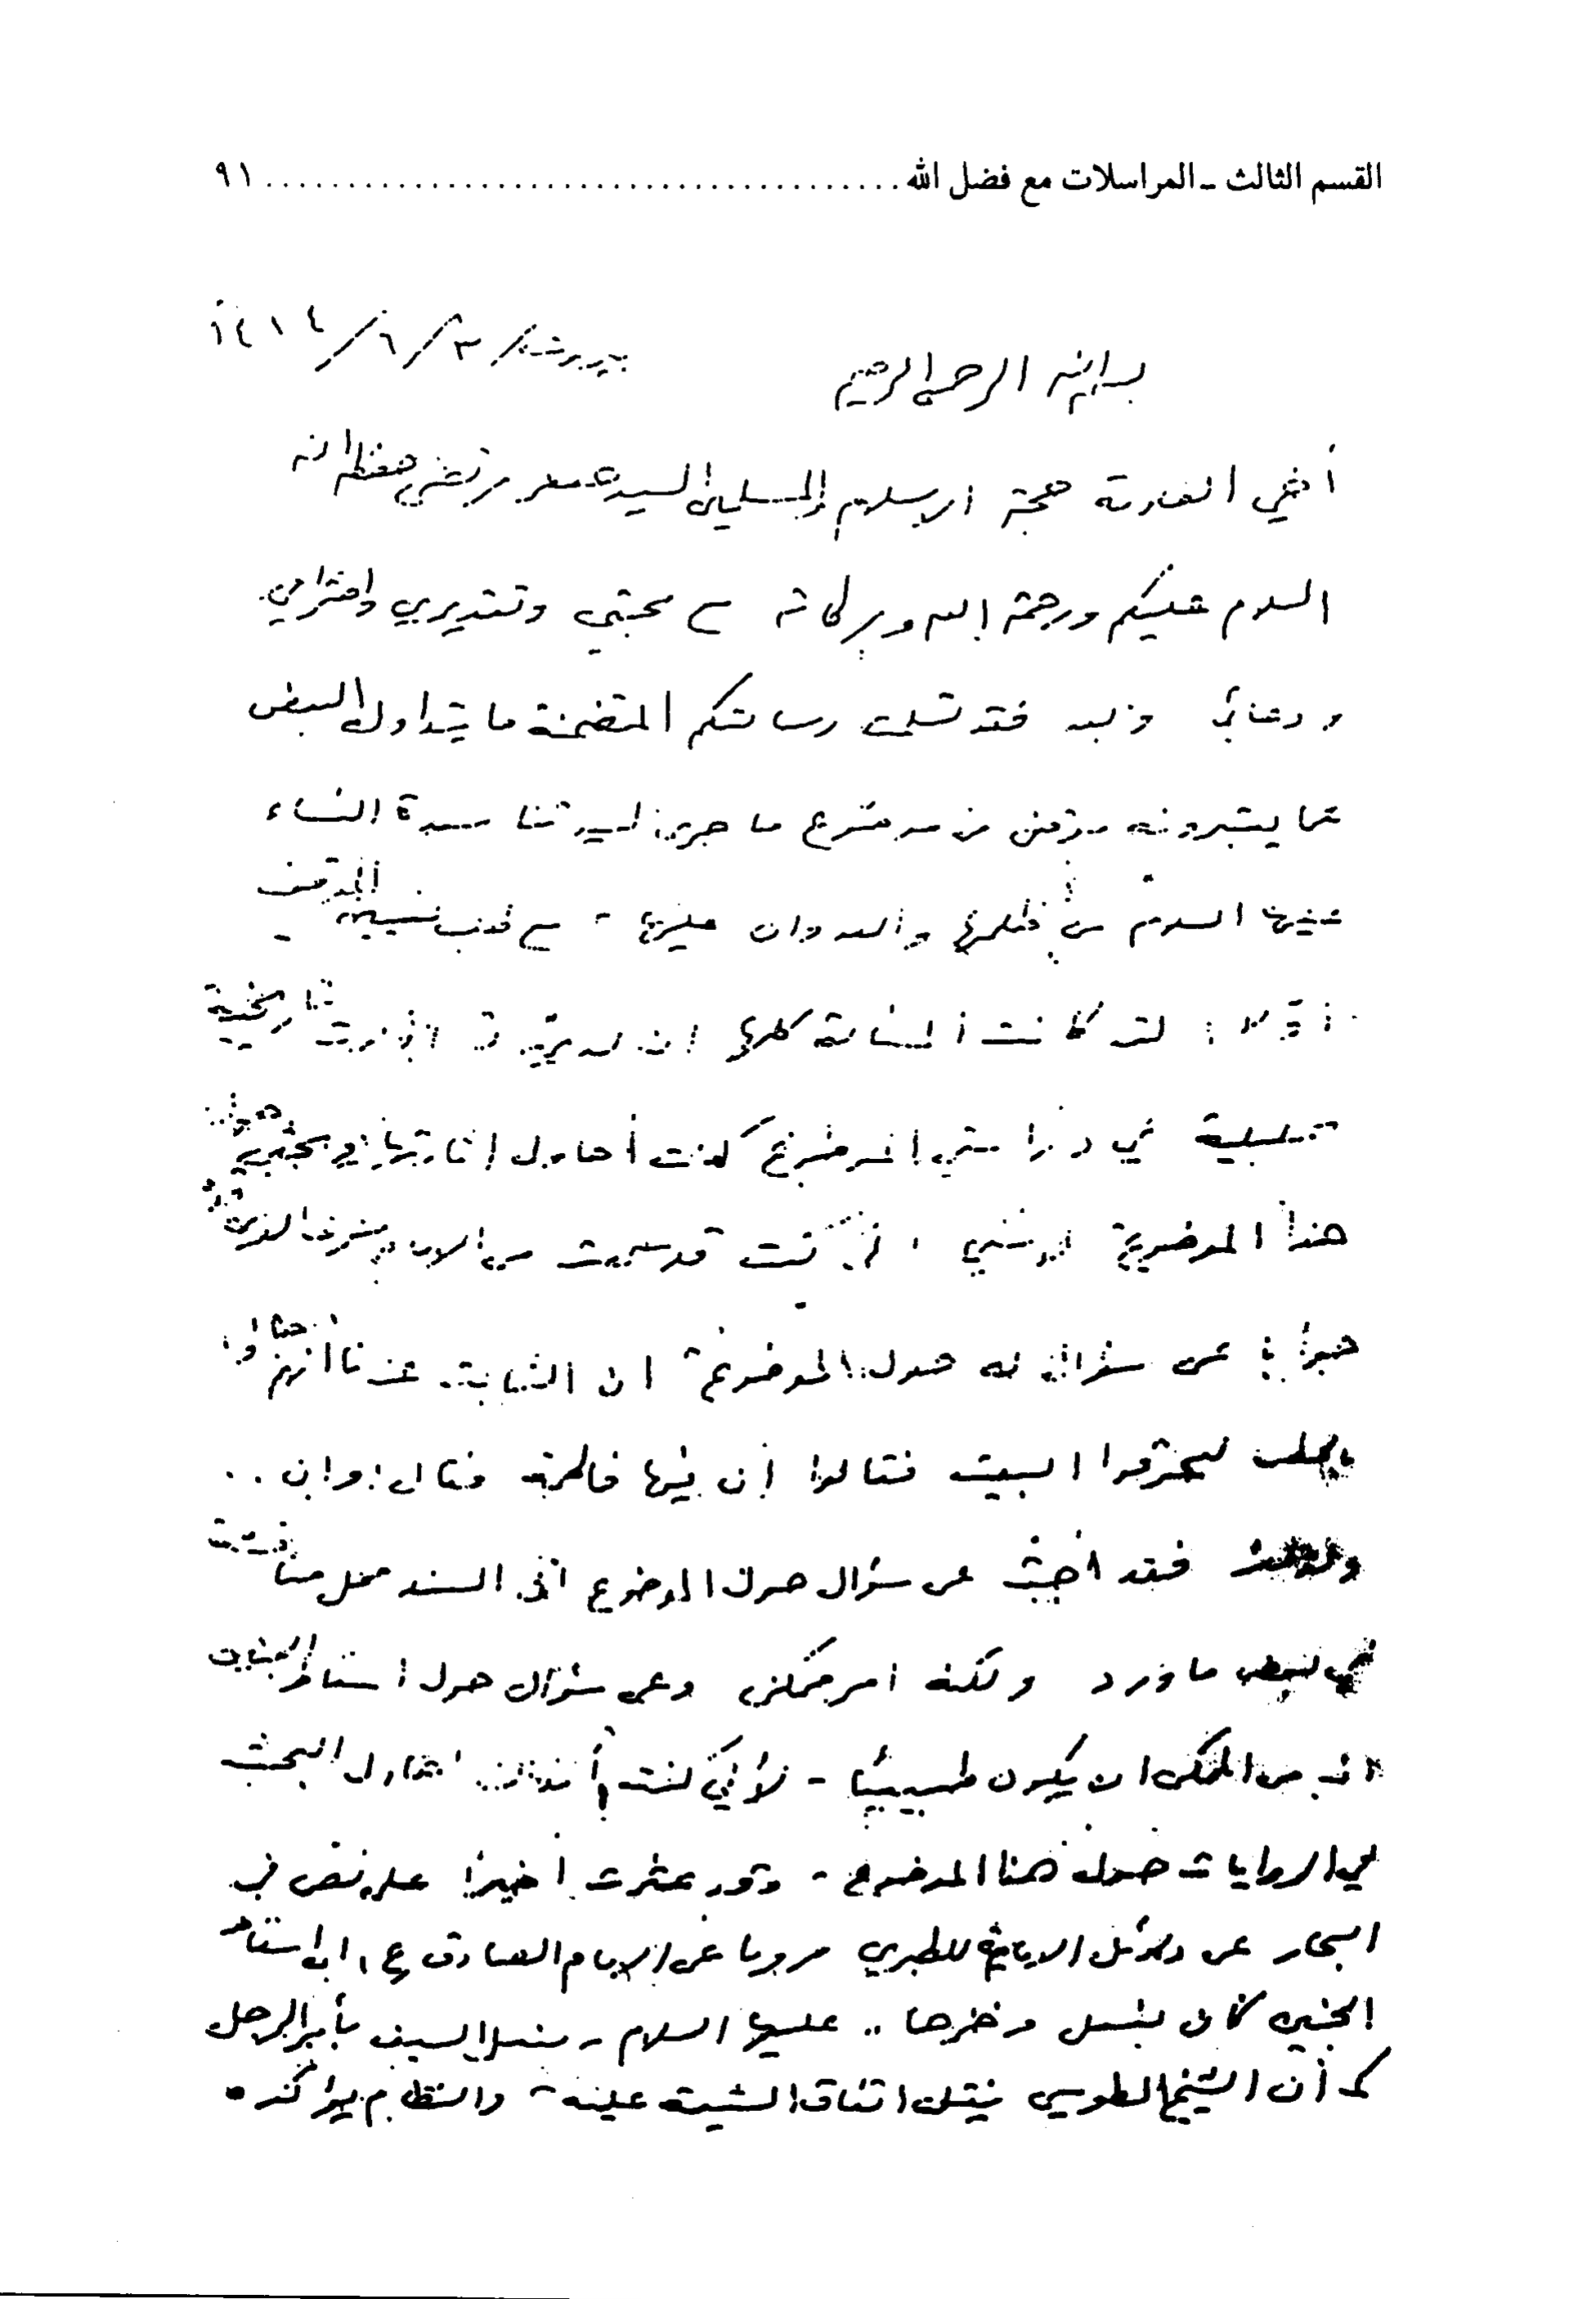 القسم الثالث ـ المراسلات مع فضل الله ........................................ ٩١
بيروت / ٣ / ٦ / ١٤١٤
بسم الله الرحمن الرحيم
أخي العلامة حجة الاسلام والمسلمين السيد جعفر مرتضى حفظه الله
السلام عليكم ورحمة الله وبركاته مع محبتي وتقديري واحترامي
ودعائي وبعد فقد تسلمت رسالتكم المتضمنة ما يتداوله البعض
مما يعتبرونه موقفي من موضوع ما جرى لسيدتنا سيدة النساء
عليها السلام من ظلمها والعدوان عليها - مع
لقد كانت المسألة كلها ان لدي تاريخية
تحليلية في دراستي الموضوع كنت أحاول إثارتها في بحثي حول
هذا الموضوع لأنني كنت قد سمعت من الامام شرف الدين
جوابا عن سؤال له حول الموضوع ان الثابت عندنا انهم جاؤوا
بالحطب ليحرقوا البيت فقالوا ان فيها فاطمة فقال : وان ..
فقد أجبت عن سؤال حول الموضوع ان السند محل مناقشة
في بعض ما ورد ولكنه امر ممكن وعن سؤال حول اسقاط الجنين
انه من الممكن ان يكون طبيعيا - لأني كنت احاول البحث
في الروايات حول هذا الموضوع - وقد عثرت أخيرا على نص في
البحار عن دلائل الامامة للطبري مرويا عن الامام الصادق ع ، ان اسقاط
الجنين كان بفعل وخزها .. عليها السلام - بنعل السيف بأمر الرجل
كما أن الشيخ الطوسي ينقل اتفاق الشيعة عليه - والنظام يؤكده